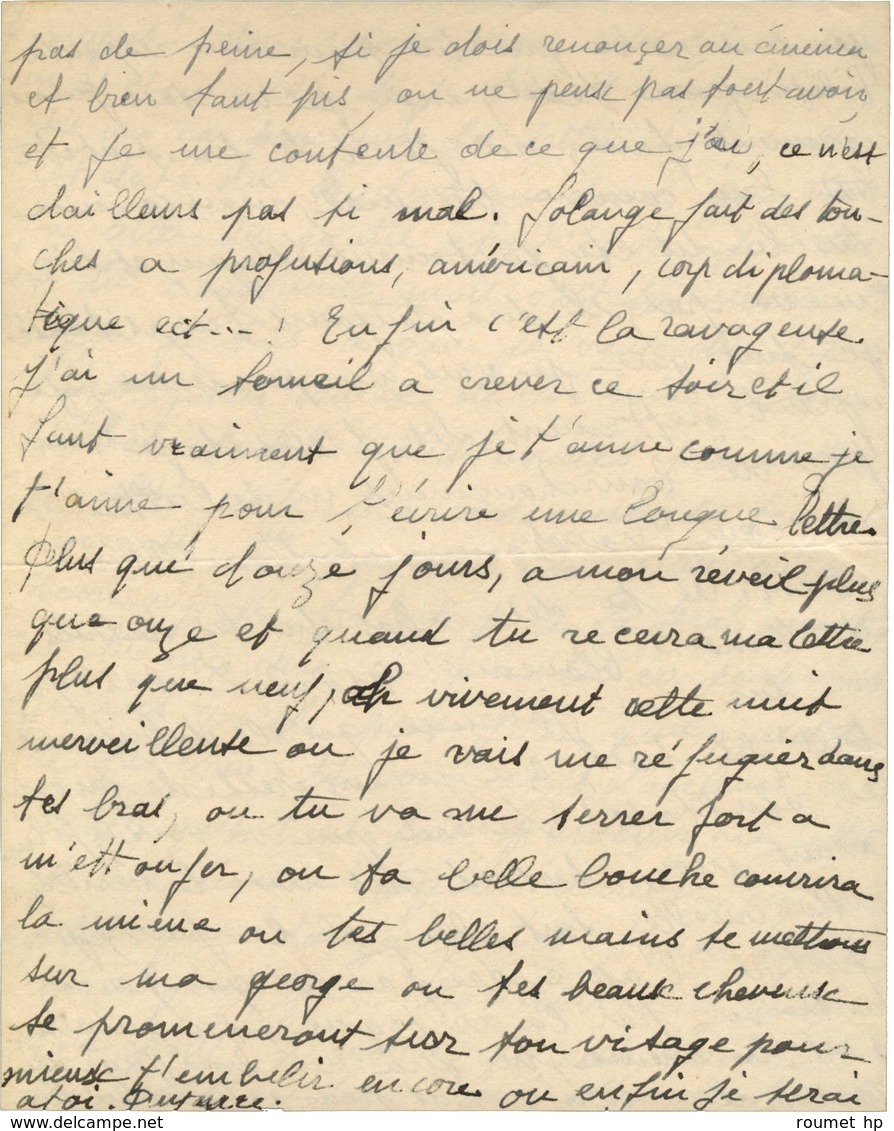 pas de peine, si je dois renonçer au cinéma
et bien tant pis, on ne peux pas tout avoir
et je me contente de ce que j'ai, ce n'est
dailleurs pas si mal. Solange fait des tou-
ches a profusions, américain, corp diploma-
tique ect...! Enfin c'est la ravageuse.
J'ai un someil a crever ce soir et il
faut vraiment que je t'aime comme je
t'aime pour t'écrire une longue lettre.
Plus que douze jours, a mon réveil plus
que onze et quand tu recevra ma lettre
plus que neuf, ah vivement cette nuit
merveilleuse ou je vais me réfugier dans
tes bras, ou tu va me serrer fort a
m'ettoufer, ou ta belle bouche couvrira
la mienne ou tes belles mains se mettrons
sur ma george ou tes beaux cheveux
se promeneront sur ton visage pour
mieux t'embelir encore ou enfin je serai
a toi.
roumet hp